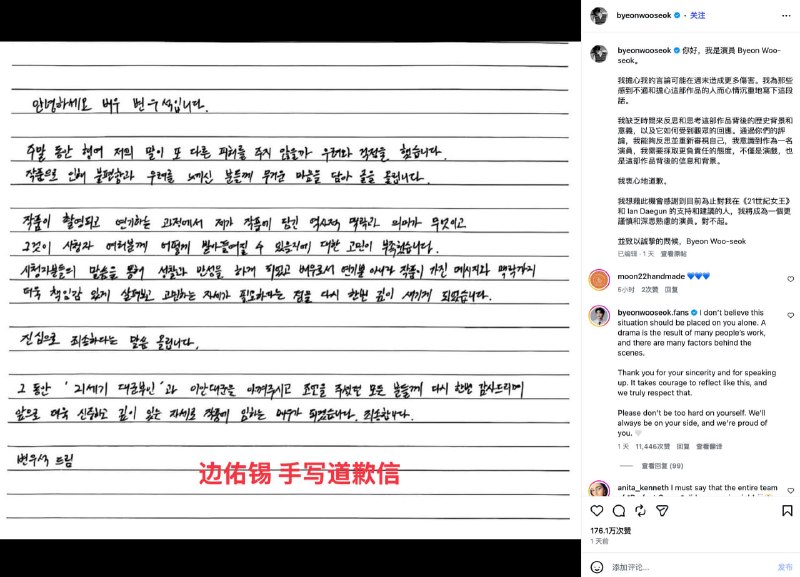 안녕하세요 배우 변우석입니다.
주말 동안 행여 저의 말이 또 다른 피해를 주지 않을까 우려와 걱정을 했습니다.
작품으로 인해 불편함과 우려를 느끼신 분들께 무거운 마음을 담아 글을 올립니다.
작품이 촬영되고 연기하는 과정에서 제가 작품에 담긴 역사적 맥락과 의미가 무엇이고
그것이 시청자 여러분께 어떻게 받아들여질 수 있을지에 대한 고민이 부족했습니다.
시청자분들의 말씀을 통해 성찰과 반성을 하게 되었고 배우로서 연기뿐 아니라 작품이 가진 메시지와 맥락까지
더욱 책임감 있게 살펴보고 고민하는 자세가 필요하다는 점을 다시 한번 깊이 새기게 되었습니다.
진심으로 죄송하다는 말씀 올립니다.
그 동안 '21세기 대군부인'과 이안대군을 아껴주시고 조언을 주셨던 모든 분들께 다시 한번 감사드리며
앞으로 더욱 신중하고 깊이 있는 자세로 작품에 임하는 배우가 되겠습니다. 죄송합니다.
변우석 드림
边佑锡 手写道歉信
byeonwooseok • 关注
byeonwooseok 你好，我是演員 Byeon Woo-
seok。
我擔心我的言論可能在週末造成更多傷害。我為那些
感到不適和擔心這部作品的人而心情沉重地寫下這段
話。
我缺乏時間來反思和思考這部作品背後的歷史背景和
意義，以及它如何受到觀眾的回應。通過你們的評
論，我能夠反思並重新審視自己，我意識到作為一名
演員，我需要採取更負責任的態度，不僅是演戲，也
是這部作品背後的信息和背景。
我衷心地道歉。
我想藉此機會感謝到目前為止對我在《21世紀女王》
和 Ian Daegun 的支持和建議的人，我將成為一個更
謹慎和深思熟慮的演員。對不起。
並致以誠摯的問候，Byeon Woo-seok
已编辑 · 1 天 查看原帖
moon22handmade 💙💙💙
6小时 2次赞 回复
byeonwooseok.fans I don't believe this
situation should be placed on you alone. A
drama is the result of many people's work,
and there are many factors behind the
scenes.
Thank you for your sincerity and for speaking
up. It takes courage to reflect like this, and
we truly respect that.
Please don't be too hard on yourself. We'll
always be on your side, and we're proud of
you. 🤍
1 天 11,446次赞 回复 查看翻译
查看回复 (99)
anita_kenneth I must say that the entire team
176.1万次赞
1 天前
添加评论...
发布